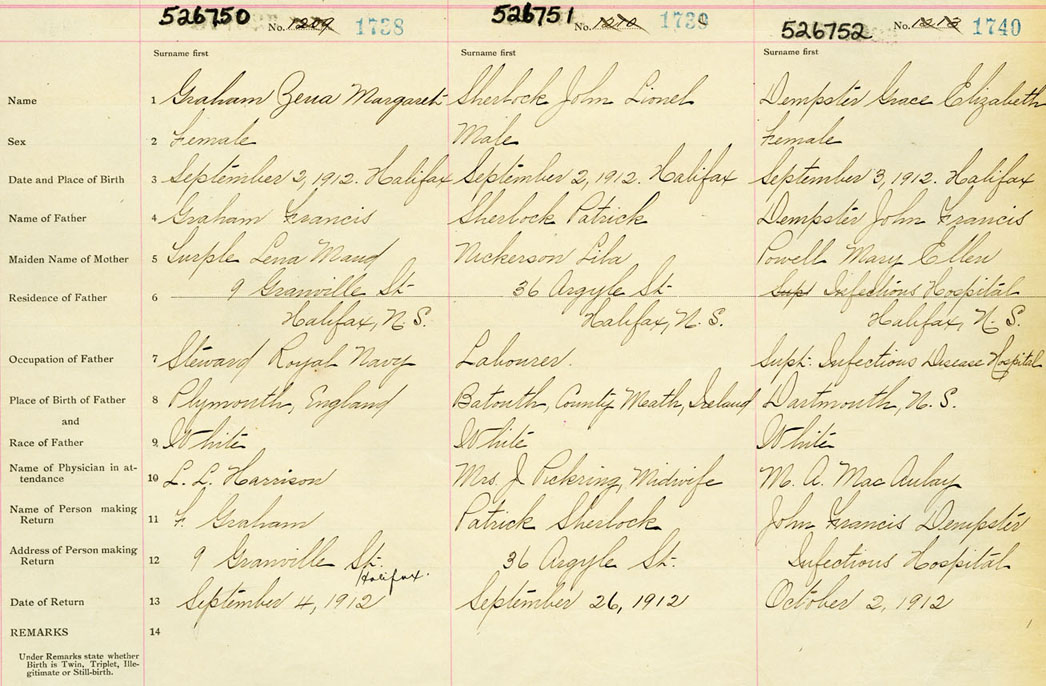 526750 No. 1209 1738 526751 No. 1210 1739 526752 No. 1213 1740
Surname first Surname first Surname first
Name 1 Graham Zena Margaret Sherlock John Lionel Dempster Grace Elizabeth
Sex 2 Female Male Female
Date and Place of Birth 3 September 2, 1912. Halifax September 2, 1912. Halifax September 3, 1912. Halifax
Name of Father 4 Graham Francis Sherlock Patrick Dempster John Francis
Maiden Name of Mother 5 Surple Lena Maud Nickerson Lila Powell Mary Ellen
Residence of Father 6 9 Granville St. 36 Argyle St. Sup Infectious Hospital
Halifax, N S. Halifax, N. S. Halifax, N. S.
Occupation of Father 7 Steward Royal Navy Labourer. Supt. Infectious Disease Hospital
Place of Birth of Father 8 Plymouth, England County Meath, Ireland Dartmouth, N. S.
and
Race of Father 9 White White White
Name of Physician in at-
tendance 10 L. L. Harrison Mrs. J. Pickring, Midwife M. A. MacAulay
Name of Person making
Return 11 F. Graham Patrick Sherlock John Francis Dempster
Address of Person making
Return 12 9 Granville St. 36 Argyle St. Infectious Hospital
Halifax.
Date of Return 13 September 4, 1912 September 26, 1912 October 2, 1912
REMARKS 14
Under Remarks state whether
Birth is Twin, Triplet, Ille-
gitimate or Still-birth.